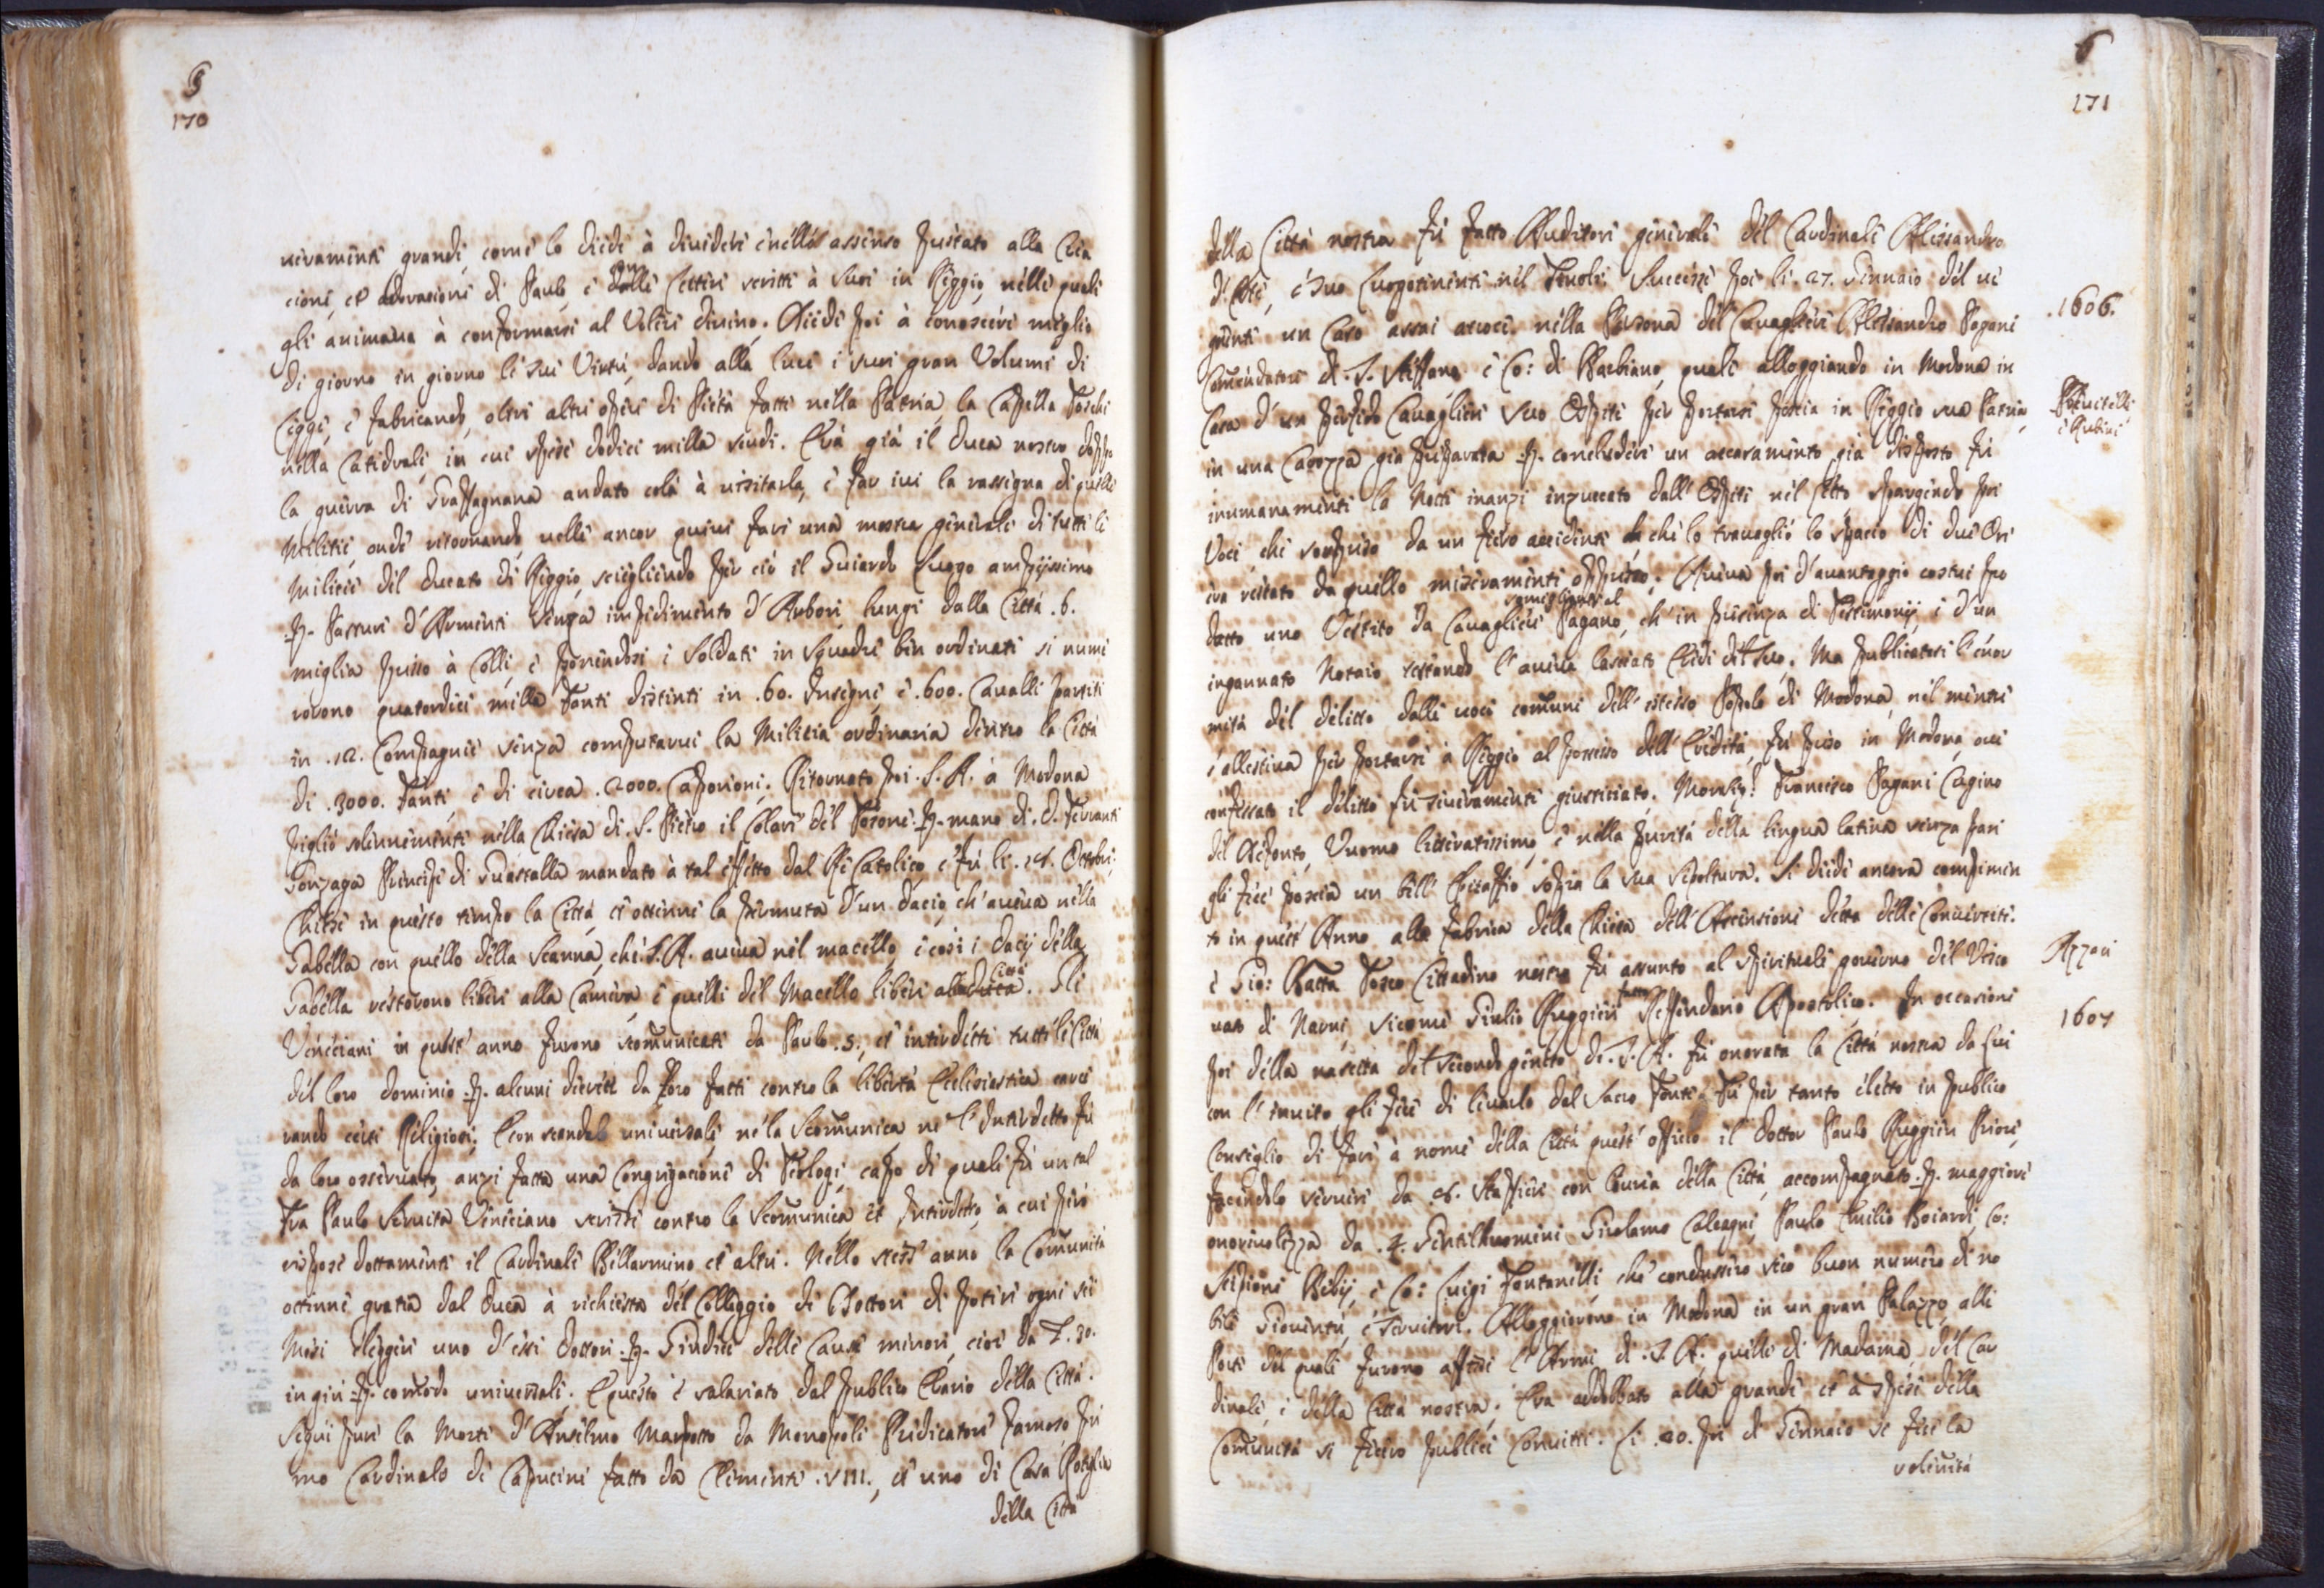 6
170
uiramente grandi, come lo diede à diuidere e nello assenso prestato alla Crea
cione, et adorazione di Paulo, e dalle Lettere scritte à suoi in Reggio, nelle quali
gli animaua à conformarsi al Volere diuino. Diede poi à conoscere meglio
di giorno in giorno le sue Virtù, dando alla luce i suoi gran Volumi di
Legge, e fabricando, oltre altre opere di Pietà fatte nella Patria, la Capella Toschi
nella Catedrale, in cui spese dodici milla scudi. Era già il Duca nostro doppo
la guerra di Graffagnana andato colà à uisitarla, e far iui la rassegna di quelle
Militie, onde ritornando, uolle ancor quiui fare una mostra generale di tutte le
Militie del Ducato di Reggio, sciegliendo per ciò il Guiardo luogo ampijssimo
p. Pasture d'Armenti senza impedimento d'Arbori, lungi dalla Città .6.
miglia presso à Colli, e ponendosi i Soldati in squadre ben ordinate si nume
rorono quatordici milla Fanti distinti in .60. Insegne, e .600. Caualli partiti
in .12. Compagnie senza computarui la Militia ordinaria dentro la Città
di .3000. Fanti, e di circa .2000. Caporioni. Ritornato poi .S.A. à Modona
pigliò solennemente nella Chiesa di .S. Pietro il Colare del Tosone .p. mano di .D. Ferrante
Gonzaga Principe di Guastalla mandato à tal effetto dal Rè Catolico, e fù li .24. Ottobre.
Chiese in questo tempo la Città, et ottenne la permuta d'un dacio, ch'aueua nella
Gabella con quello della Scanna, che .S.A. aueua nel macello, e così i dacij della
Gabella restorono liberi alla Camera, e quelli del Macello liberi alla Città. Gli
Veneciani in quest' anno furono scomunicati da Paulo .5., et interdette tutte le Città
del loro dominio .p. alcuni decreti da loro fatti contro la libertà Ecclesiastica carce
rando certi Religiosi. E con scandalo uniuersale, nè la Scomunica, nè l'Interdetto fù
da loro osseruato, anzi fatta una Congregatione di Teologi, capo di quali fù un tal
Fra Paulo Seruita Veneciano scrisse contro la Scomunica et Interdetto, à cui però
rispose dottamente il Cardinale Bellarmino et altri. Nello stess' anno la Comunità
ottenne gratia dal Duca à richiesta del Colleggio de Dottori di potere ogni sei
Mesi eleggere uno d'essi Dottori .p. Giudice delle Cause minori, cioè da £.30.
in giù .p. comodo uniuersale. E questo è salariato dal publico Erario della Città.
Seguì pure la Morte d'Anselmo Marpotto da Monopoli Predicatore famoso, pri
mo Cardinale de Capucini fatto da Clemente .VIII., et uno di Casa
della Città
6
171
della Città nostra fù fatto Auditore generale del Cardinale Alessandro
d'Este, e suo Luogotenente nel Tiuoli. Successe poi li .27. Gennaio del ue
gnente un Caso assai atroce nella Persona del Caualiere Alessandro Pagani
.1606.
Comendatore di .S. Steffano e Co: di Barbiano, quale alloggiando in Modona in
Casa d'un perfido Caualiere suo Ospite per portarsi poscia in Reggio sua Patria,
in una Carozza già preparata .p. concludere un accasamento già disposto fù
inumanamente la Notte inanzi inzuccato dall' Ospite nel Letto, spargendo poi
Voce, che sorpreso da un fiero accidente che lo trauagliò lo spacio di due Ore
era restato da quello miseramente oppresso. Aueua poi d'auantaggio costui pro
dotto uno Vestito da Caualiere somigliante al Pagano, ch' in presenza di Testimonij, e d'un
ingannato Notaio testando l'aueua lasciato Erede del suo. Ma publicatosi l'enor
mità del delitto dalle uoci comuni dell' istesso Popolo di Modona, nel mentre
s'allestiua per portarsi à Reggio al possesso dell' Eredità, fù preso in Modona, oue
confessato il delitto fù seueramente giustitiato. Francesco Pagani Cugino
del Defonto, Vuomo litteratissimo, e nella purità della lingua latina senza pari
gli fece poscia un bell' Epitaffio sopra la sua sepoltura. Si diede ancora compimen
to in quest' Anno alla fabrica della Chiesa dell' Ascensione detta delle Conuertite.
è Gio: Batta Tosco Cittadino nostro fù assunto al spirituale gouerno del Vesco
uato di Narni, sicome Giulio Ruggieri fatto Refferendario Apostolico. In occasione
Azzari
1607
poi della nascita del secondo genito di .S.A. fù onorata la Città nostra da lui
con l'inuito, gli fece di leuarlo dal Sacro Fonte. Fù per tanto eletto in publico
Consiglio di fare à nome della Città quest' officio il Dottor Paulo Ruggieri Priore,
facendolo seruire da .26. Staffieri con liurea della Città, accompagnato .p. maggiore
onoreuolezza da .4. Gentilhuomini Girolamo Calcagni, Paulo Emilio Boiardi, Co:
Scipione Bebij, e Co: Luigi Fontanelli, che condussero seco buon numero di no
bile Giouentù, e Seruitori. Alloggiorono in Modona in un gran Palazzo, alle
Porte del quale furono affisse l'Armi di .S.A. quelle di Madama, del Car
dinale, e della Città nostra. Era addobbato alla grande et à spese della
Comunità si fecero publici Conuitti. Li .20. poi di Gennaio si fece la
solennità